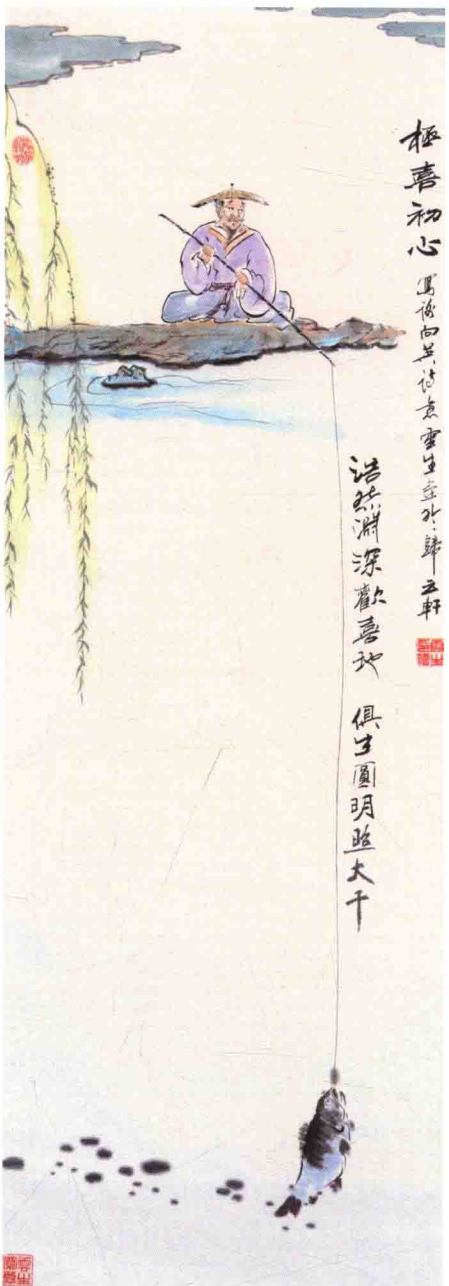 極喜初心 寫向英诗意雲生畫於歸云軒
浩然淵深歡喜地 俱生圓明照大千